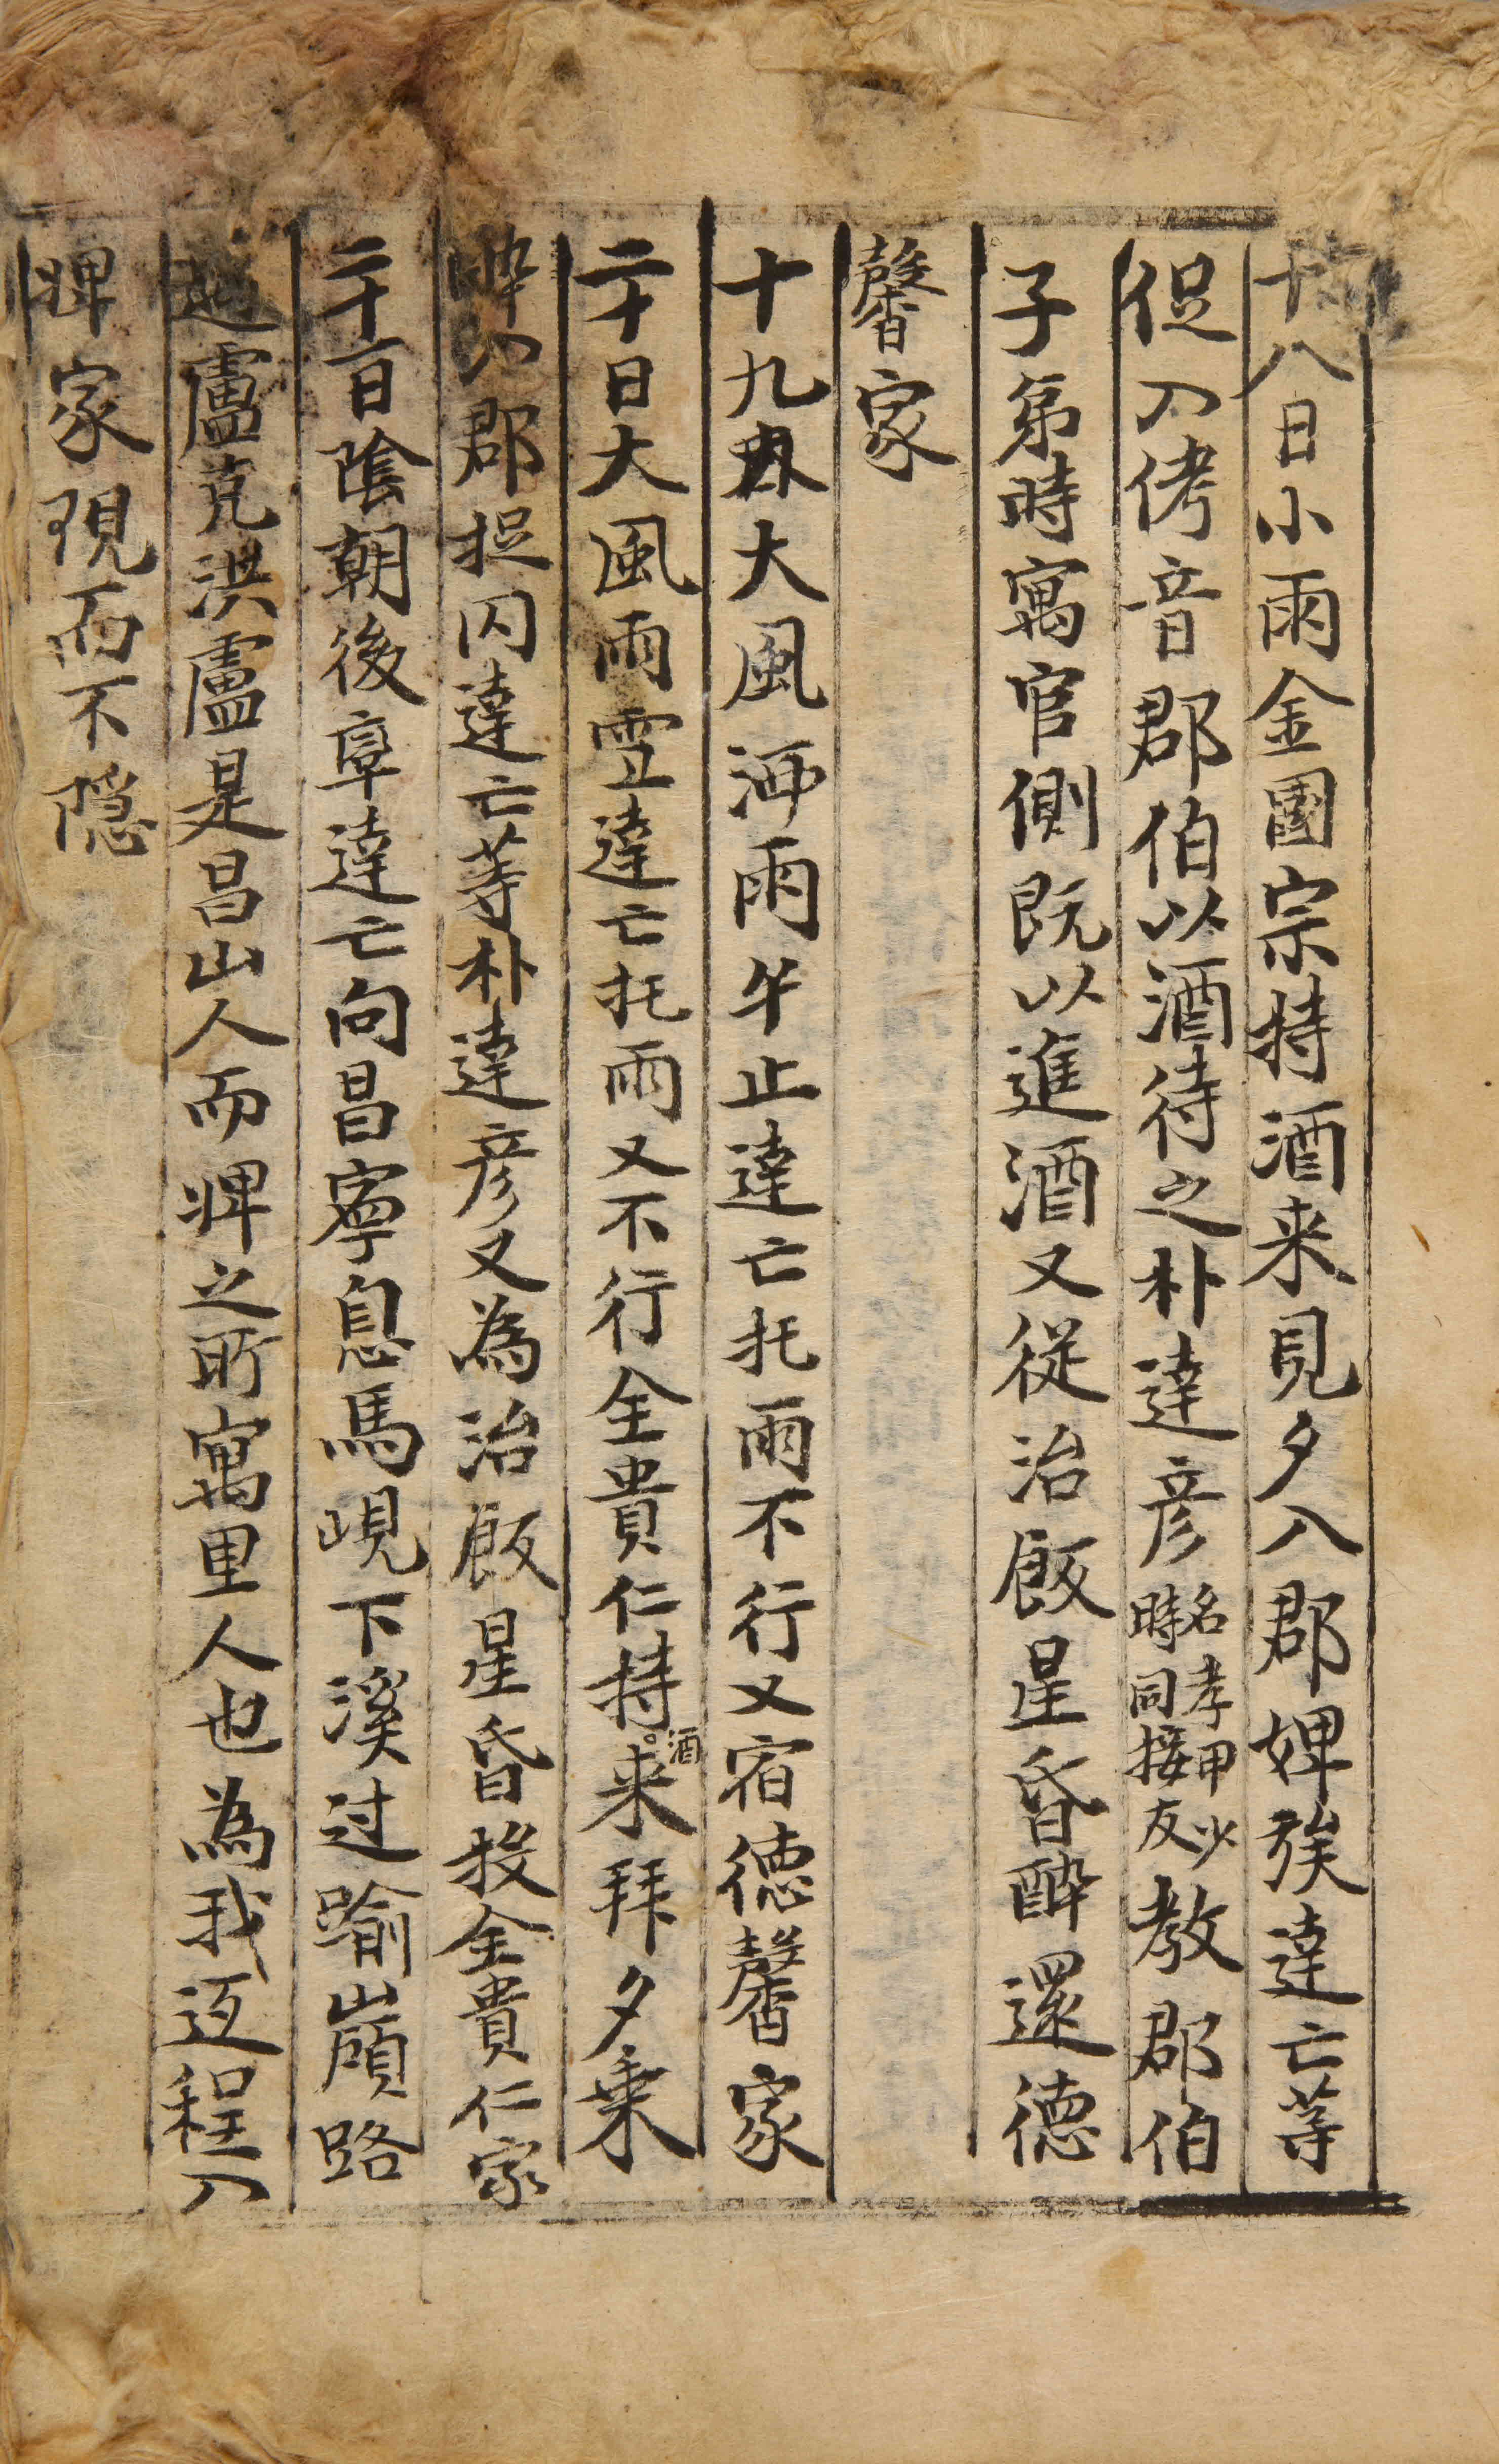 十八日小雨金國宗持酒来見夕入郡婢族達亡等
促入侤音郡伯以酒待之朴達彦名孝甲少時同接友教郡伯
子弟時寓官側既以進酒又從治飯星昏酔還德
馨家
十九日大風洒雨午止達亡托雨不行又宿德馨家
二十日大風雨雪達亡托雨又不行全貴仁持酒来拜夕乗
酔入郡捉囚達亡等朴達彦又為治飯星昏投全貴仁家
二十一日陰朝後率達亡向昌寧息馬峴下溪过踰嶺路
盧克洪盧是昌山人而婢之所寓里人也為我迋程入
婢家現而不隠